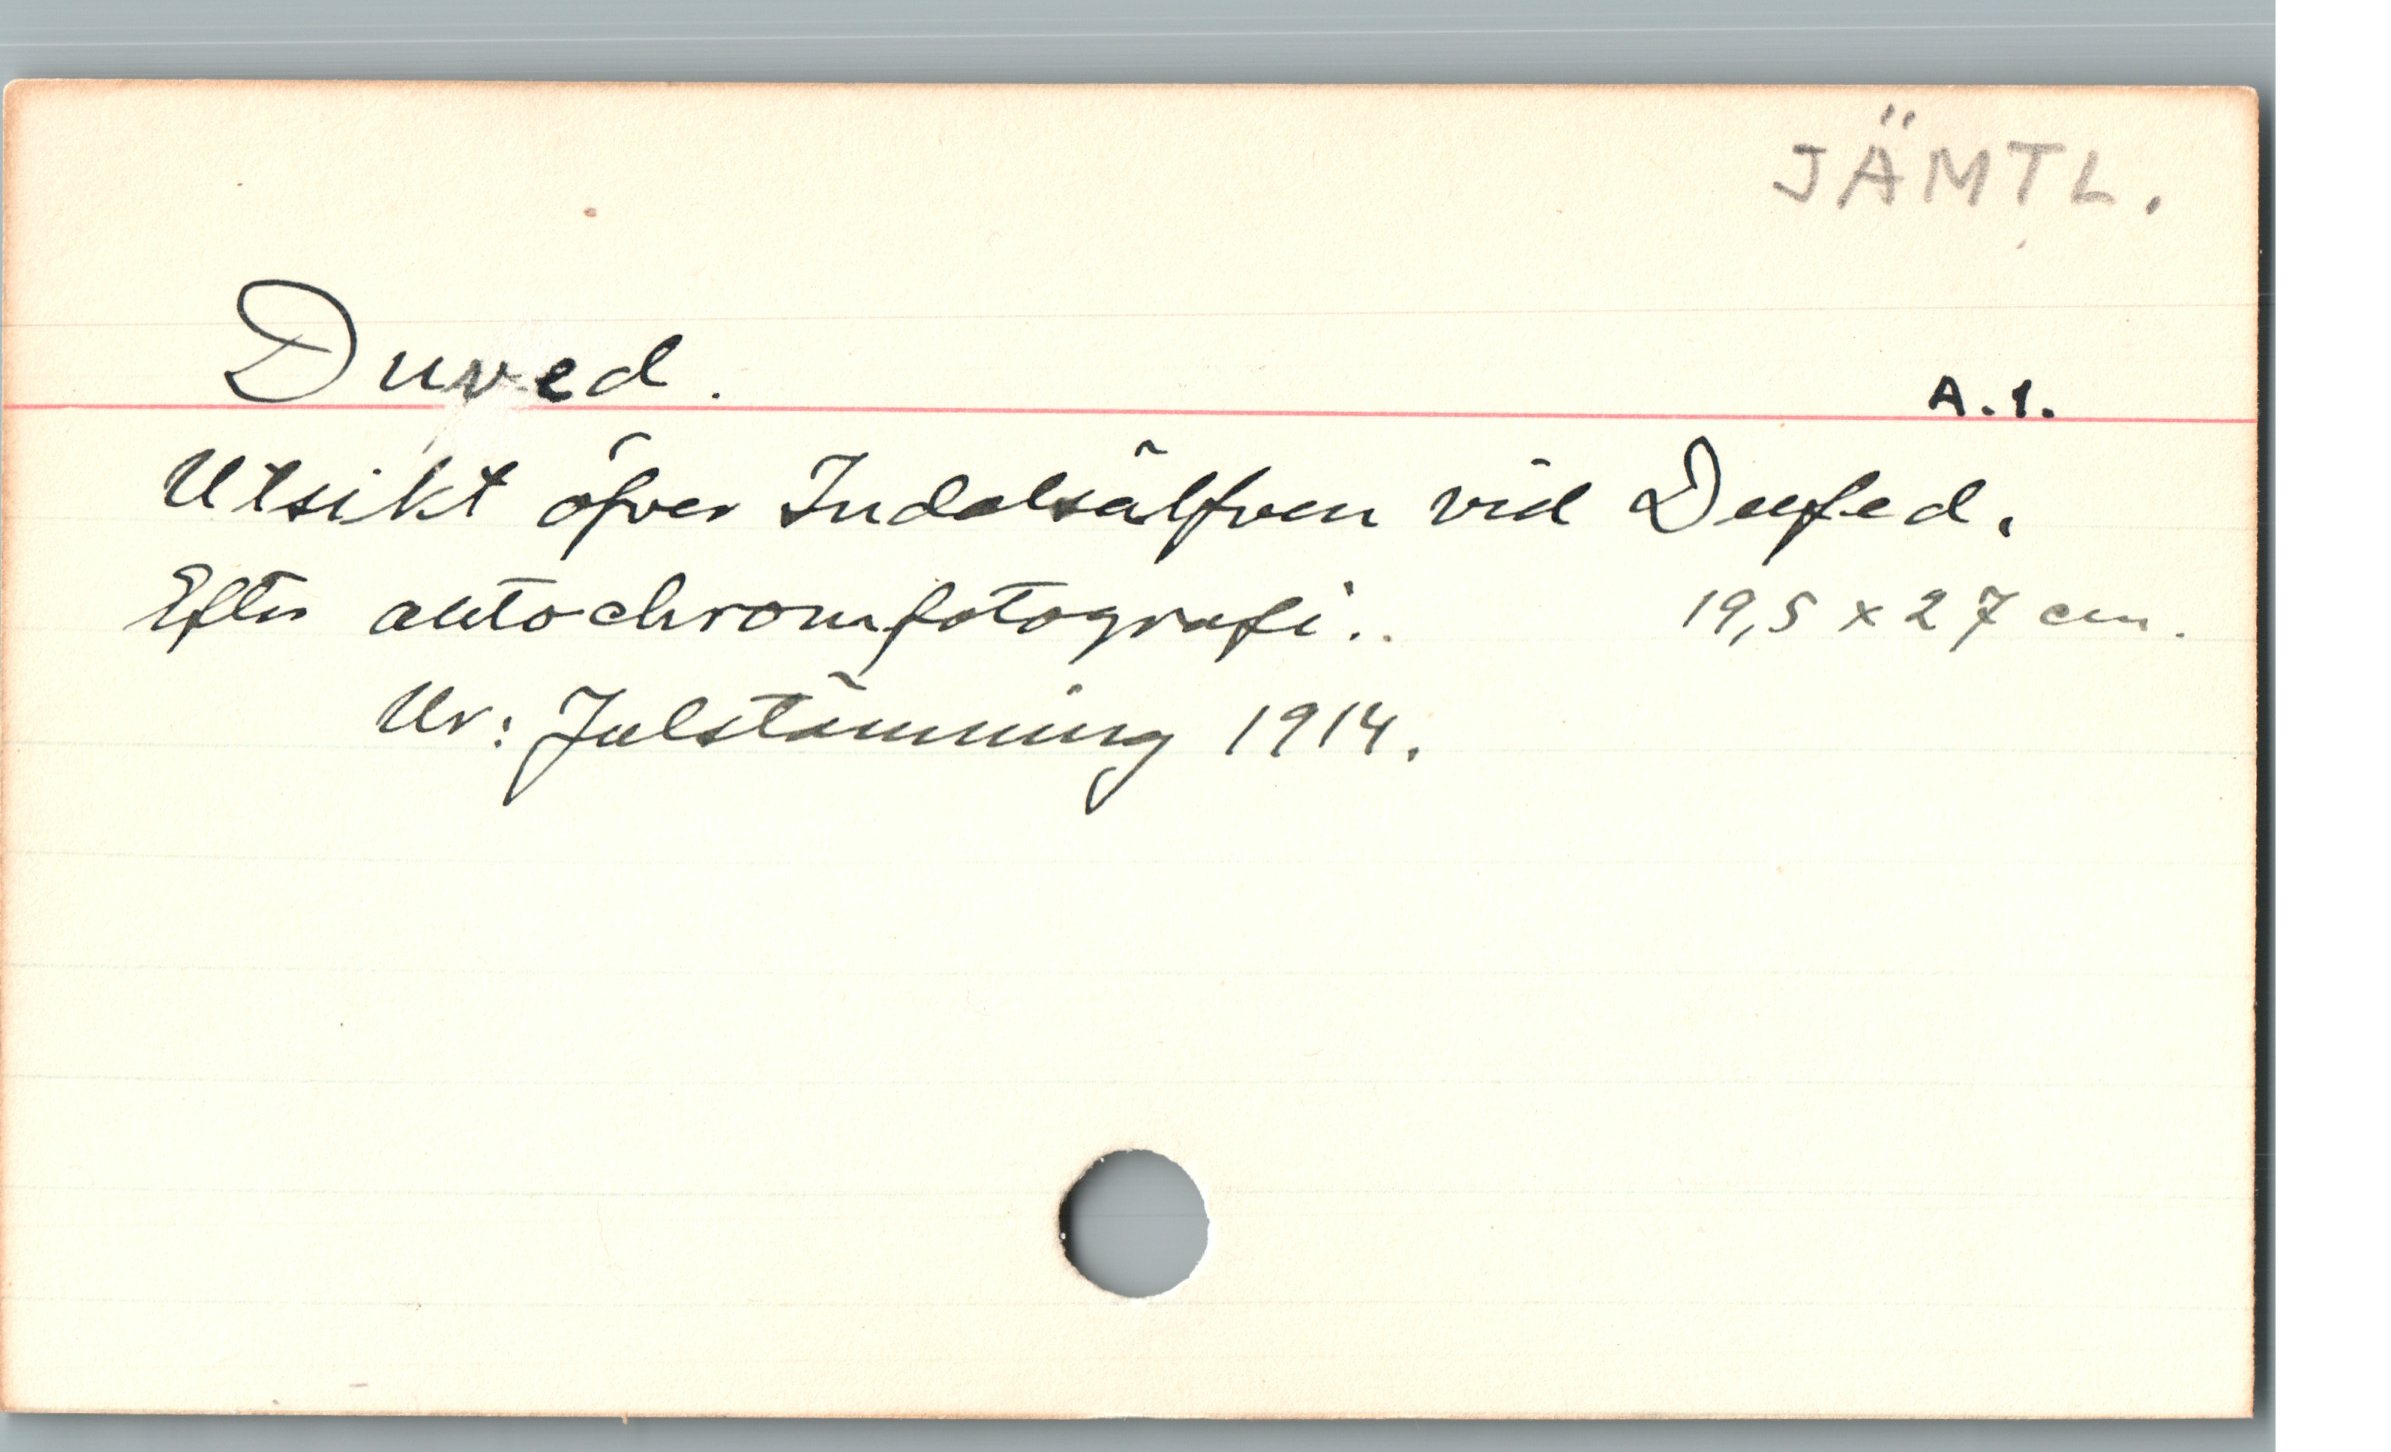 JÄMTL.
Duved. A.1.
Utsikt öfver Indalsälfven vid Dufed.
Efter autochromfotografi. 19,5 x 27 cm.
Ur: Julstämning 1914.